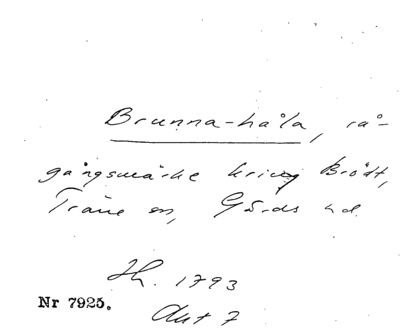 Brunna-håla, rå-
gångsmärke kring Brödt,
Träne sn, Gärds hd.
Lh. 1793
Nr 7925.
Akt 7